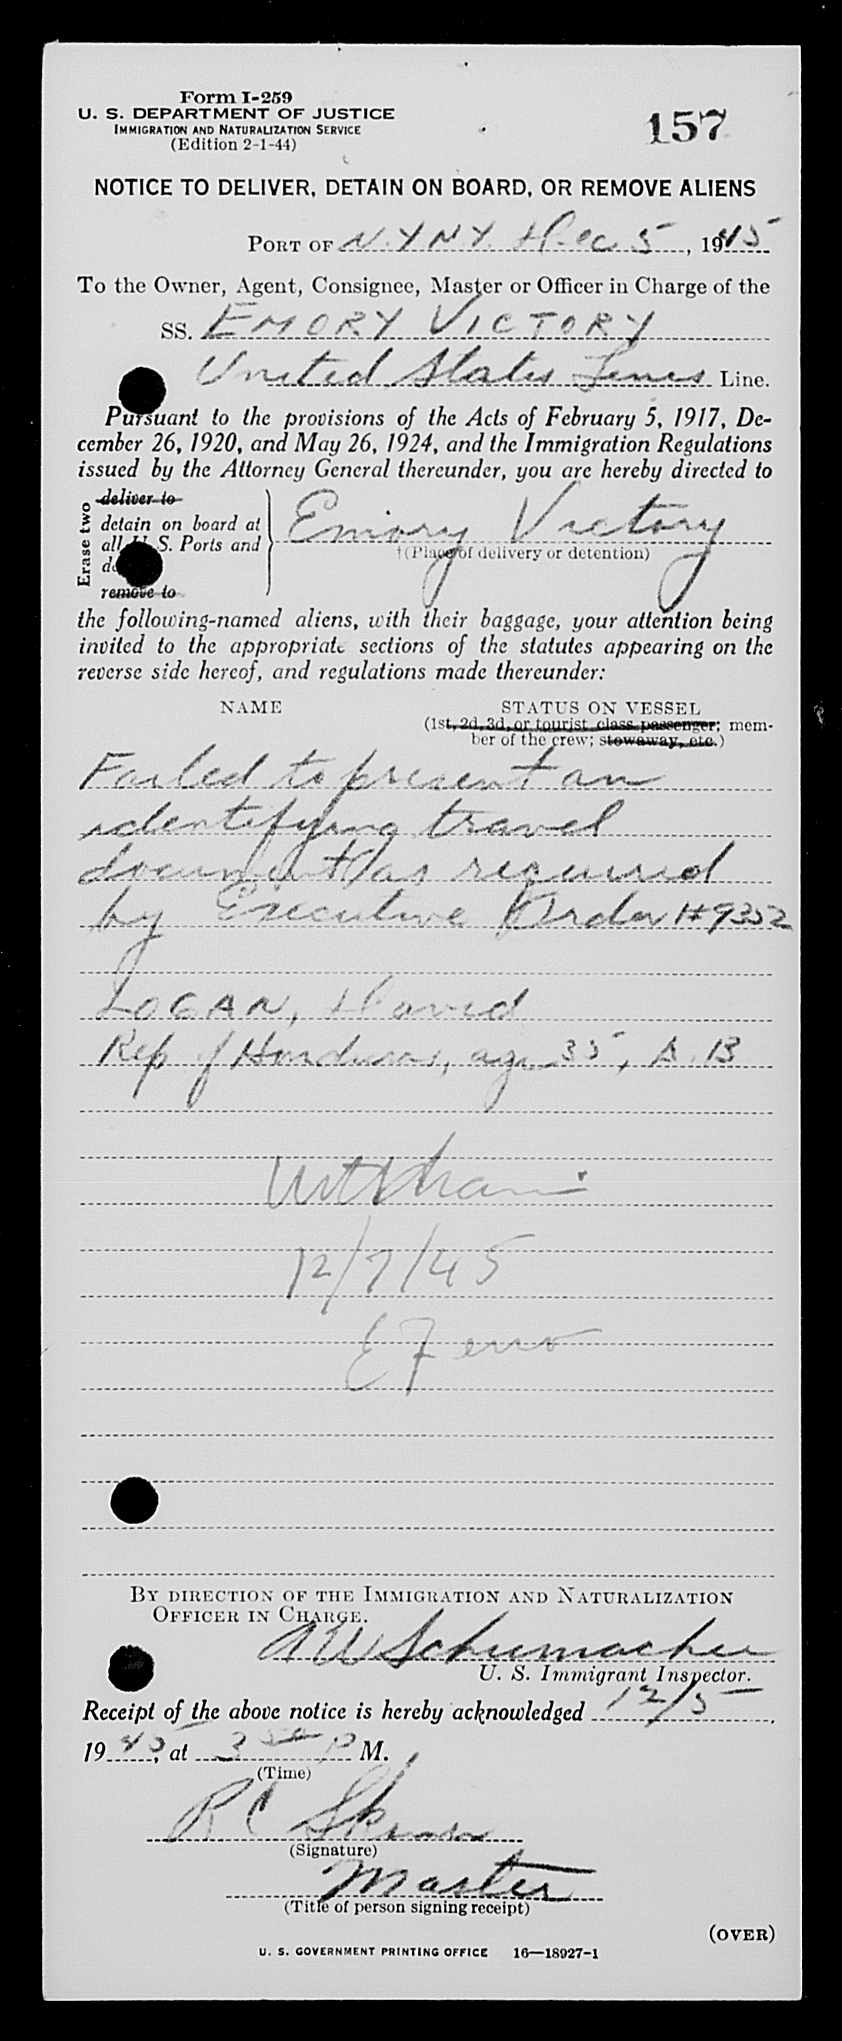 Form I-259
U. S. DEPARTMENT OF JUSTICE
IMMIGRATION AND NATURALIZATION SERVICE
(Edition 2-1-44)
157
NOTICE TO DELIVER, DETAIN ON BOARD, OR REMOVE ALIENS
PORT OF N.Y N.Y. Dec 5, 1945
To the Owner, Agent, Consignee, Master or Officer in Charge of the
SS. EMORY VICTORY
United States Lines Line.
Pursuant to the provisions of the Acts of February 5, 1917, De-
cember 26, 1920, and May 26, 1924, and the Immigration Regulations
issued by the Attorney General thereunder, you are hereby directed to
Erase two
deliver to
detain on board at
all U. S. Ports and
remove to
Emory Victory
†(Place of delivery or detention)
the following-named aliens, with their baggage, your attention being
invited to the appropriate sections of the statutes appearing on the
reverse side hereof, and regulations made thereunder:
NAME STATUS ON VESSEL
(1st, 2d, 3d, or tourist class passenger; mem-
ber of the crew; stowaway, etc.)
Failed to present an
identifying travel
document as required
by Executive Order #9352
LOGAN, David
Rep of Honduras, age 35, A.B
12/7/45
BY DIRECTION OF THE IMMIGRATION AND NATURALIZATION
OFFICER IN CHARGE.
A W Schumacher
U. S. Immigrant Inspector.
Receipt of the above notice is hereby acknowledged 12/5,
1945, at 3 P M.
(Time)
R C
(Signature)
Master
(Title of person signing receipt)
(OVER)
U. S. GOVERNMENT PRINTING OFFICE 16—18927-1